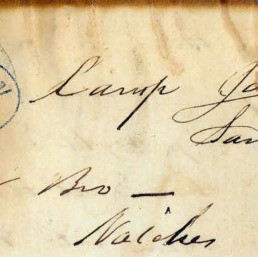 Camp Ja
San
Bro —
Natches